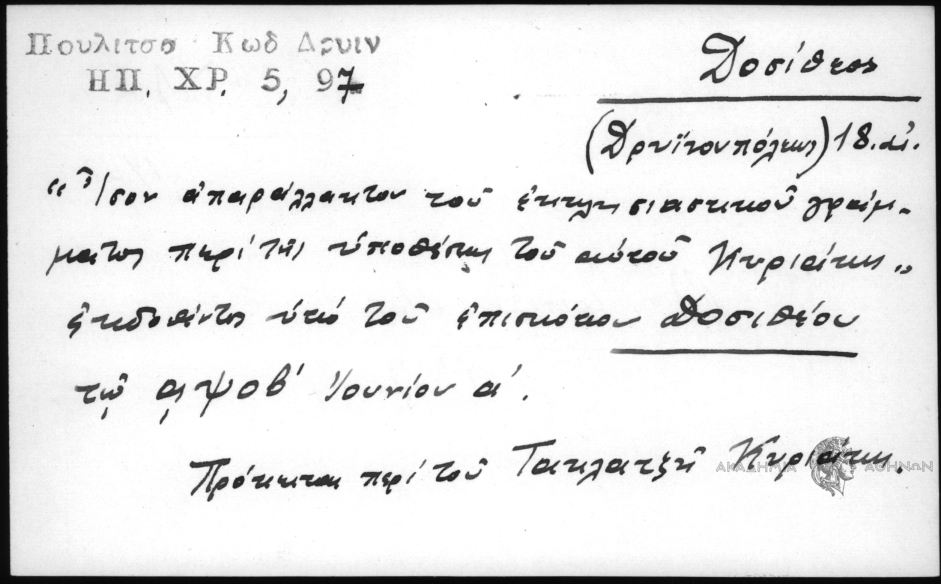 Πουλιτσα Κωδ Δρυιν
ΗΠ. ΧΡ. 5, 97
Δοσίθεος
(Δρυϊνουπόλεως) 18. αἰ.
“Ἴσον ἀπαράλλακτον τοῦ ἐκκλησιαστικοῦ γράμ-
ματος περί τῆς ὑποθέσεως τοῦ αὐτοῦ Κυριάκη„
ἐκδοθέντος ὑπό τοῦ ἐπισκόπου Δοσιθέου
τῷ ͵αψοβ' Ἰουνίου α'.
Πρόκειται περί τοῦ Τακλατζῆ Κυριάκη.
ΑΚΑΔΗΜΙΑ ΑΘΗΝΩΝ